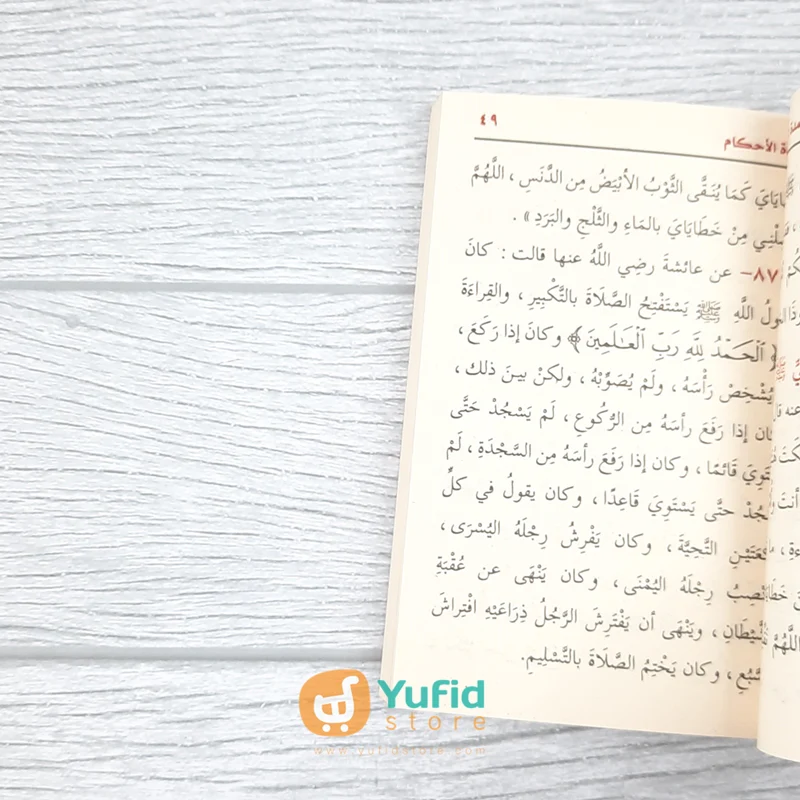 ٤٩
الأحكام
كَمَا يُنَقَّى الثَّوْبُ الأبْيَضُ مِن الدَّنَسِ، اللَّهُمَّ
مِنْ خَطَايَايَ بالمَاءِ والثَّلْجِ والبَرَدِ».
٨٧- عن عائشةَ رضِي اللَّهُ عنها قالت: كانَ
اللَّهِ ﷺ يَسْتَفْتِحُ الصَّلَاةَ بالتَّكْبِيرِ، والقِراءَةَ
﴿ٱلْحَـمْدُ لِلَّهِ رَبِّ ٱلْعَـٰلَمِينَ﴾ وكانَ إذا رَكَعَ،
يُشْخِصْ رَأْسَهُ، ولَمْ يُصَوِّبْهُ، ولكنْ بينَ ذلك،
إذا رَفَعَ رأسَهُ مِن الرُّكُوعِ، لَمْ يَسْجُدْ حَتَّى
قَائمًا، وكان إذا رَفَعَ رأسَهُ مِن السَّجْدَةِ، لَمْ
حتَّى يَسْتَوِيَ قَاعِدًا، وكان يقولُ في كلِّ
التَّحِيَّةَ، وكان يَفْرِشُ رِجْلَهُ اليُسْرَى،
رِجْلَهُ اليُمْنَى، وكان يَنْهَى عن عُقْبَةِ
الشَّيْطَانِ، ويَنْهَى أن يَفْتَرِشَ الرَّجُلُ ذِرَاعَيْهِ افْتِراشَ
وكان يَخْتِمُ الصَّلَاةَ بالتَّسْلِيمِ.
Yufid
store
www.yufidstore.com